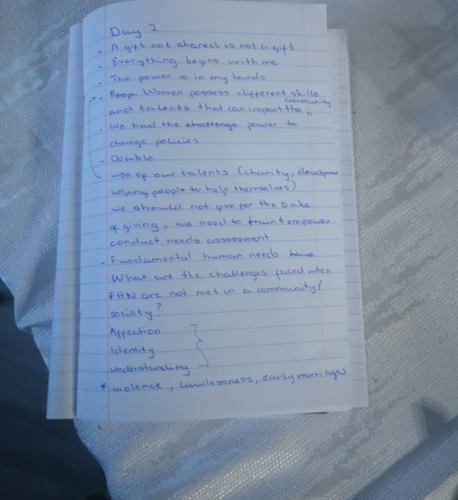 Day 2
- A gift not shared is not a gift
- Everything begins with me
- The power is in my hands
- Women possess different skills
and talents that can impact the community
- We had the challenge power to
change policies
- Double
use of our talents (charity, developm
helping people to help themselves)
we should not give for the sake
of giving, we need to train empower
conduct needs assessment
- Fundamental human needs have
What are the challenges faced when
FHN are not met in a community/
society?
Affection
Identity
understanding
* violence, lawlessness, early marriages